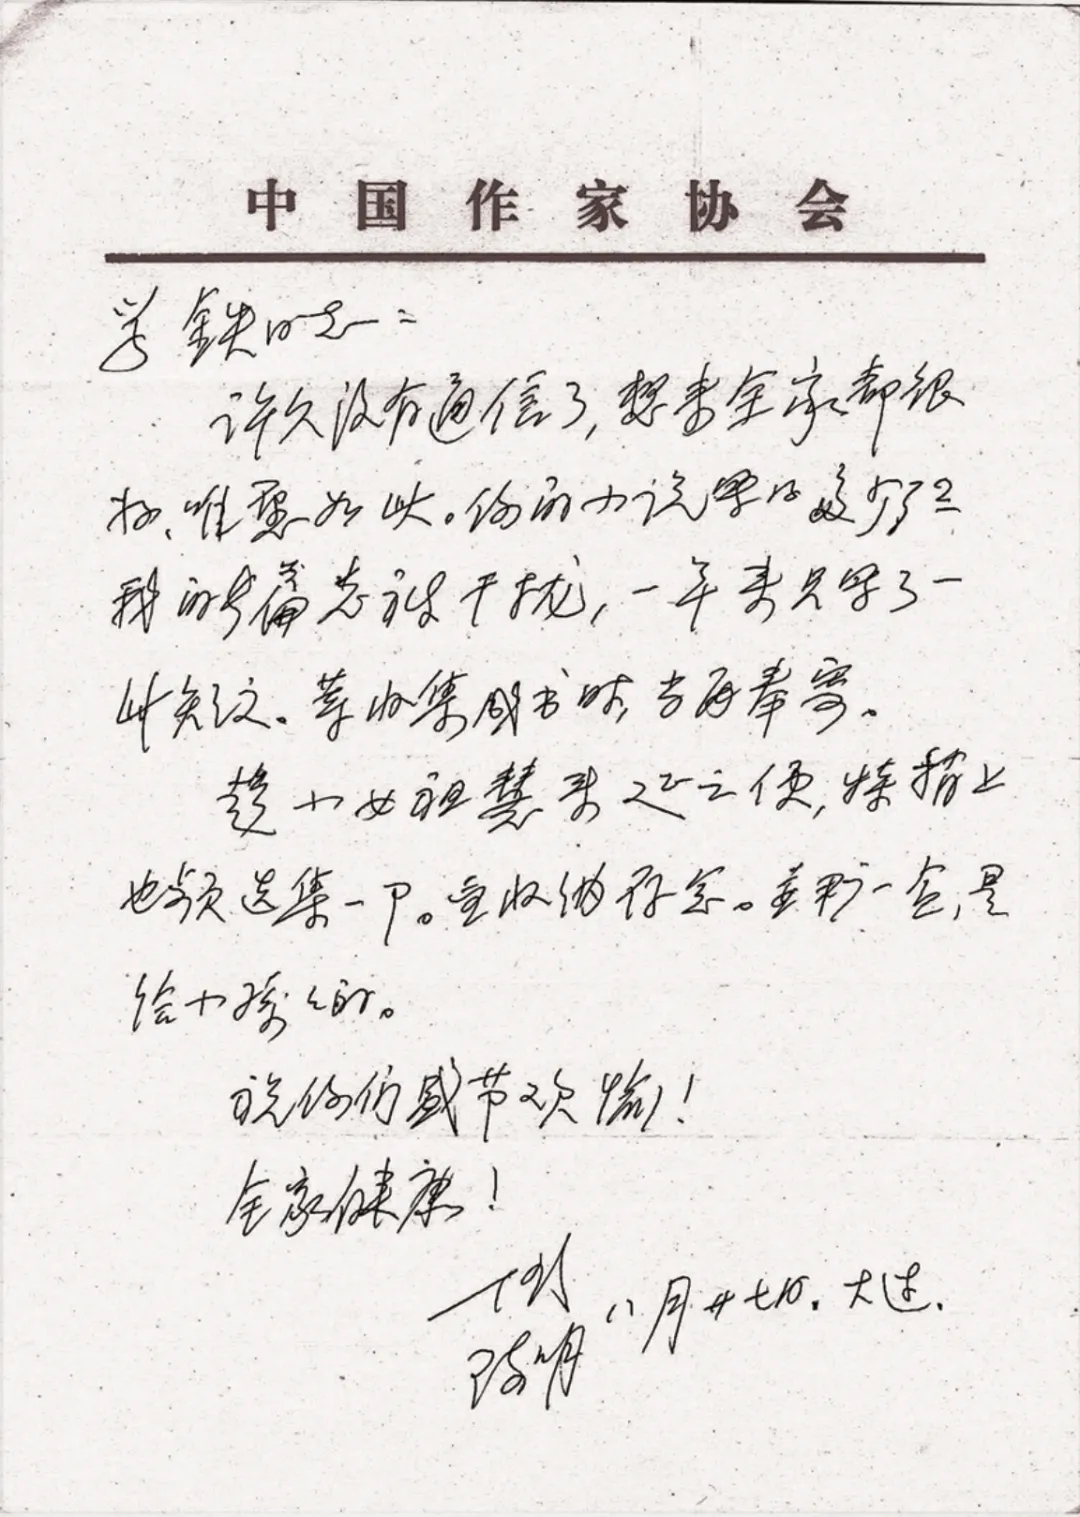 中国作家协会
学铁同志：
许久没有通信了，想来全家都很
好、唯愿如此。你的小说写得多少了？
我的长篇总被干扰，一年来只写了一
些短文。等收集成书时，当再奉寄。
趁小女祖慧来延之便，特捎上
也频选集一部。望收纳存念。一盒，是
给小孩的。
祝你们盛节欢愉！
全家健康！
丁玲 八月廿七日. 大连.
陈明